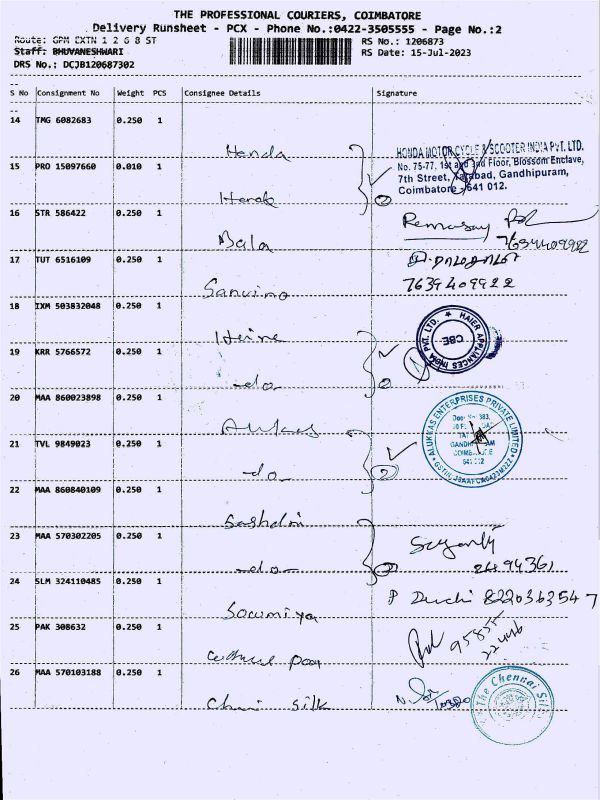 THE PROFESSIONAL COURIERS, COIMBATORE
Delivery Runsheet - PCX - Phone No.:0422-3505555 - Page No.:2
Route: GPM EXTN 1 2 6 8 ST
RS No.: 1206873
Staff: BHUVANESHWARI
RS Date: 15-Jul-2023
DRS No.: DCJB120687302
S No Consignment No Weight PCS Consignee Details Signature
14 TMG 6082683 0.250 1
Honda
HONDA MOTOR CYCLE & SCOOTER INDIA PVT. LTD.
No. 75-77, 1st and 2nd Floor, Blossom Enclave,
7th Street, Tatabad, Gandhipuram,
Coimbatore - 641 012.
15 PRO 15097660 0.010 1
Honda
2
16 STR 586422 0.250 1
Bala
7639409922
17 TUT 6516109 0.250 1
7639409922
18 IXM 503832048 0.250 1
HAIER APPLIANCES INDIA PVT. LTD.
CBE
19 KRR 5766572 0.250 1
-do-
2
20 MAA 860023898 0.250 1
ALUKKAS ENTERPRISES PRIVATE LIMITED
21 TVL 9849023 0.250 1
-do-
2
641 012
22 MAA 860840109 0.250 1
23 MAA 570302205 0.250 1
-do-
2
24 SLM 324110485 0.250 1
Sowmiya
8220363547
25 PAK 308632 0.250 1
26 MAA 570103188 0.250 1
Chennai Silk
The Chennai Silks